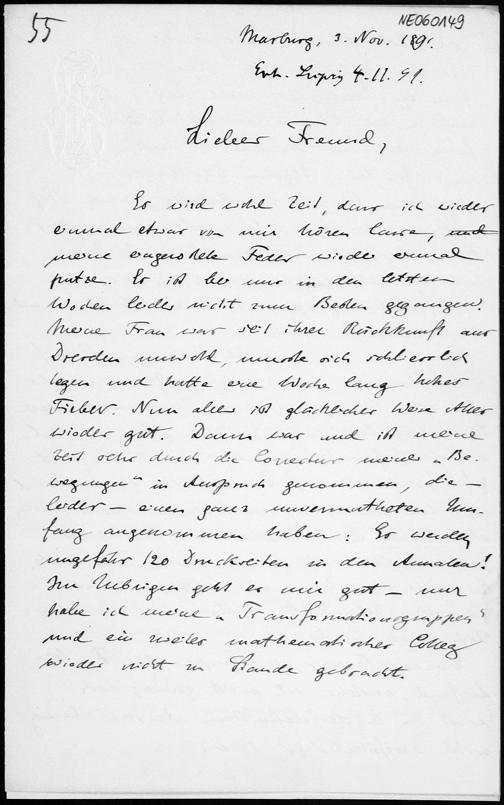 55
NE060149
Marburg, 3. Nov. 1891.
Erh. Leipzig 4.11.91.
Lieber Freund,
Es wird wohl Zeit, dass ich wieder
einmal etwas von mir hören lasse, und
meine eingerostete Feder wieder einmal
putze. Es ist bei uns in den letzten
Wochen leider nicht zum Besten gegangen.
Meine Frau war seit ihrer Rückkunft aus
Dresden unwohl, musste sich schliesslich
legen und hatte eine Woche lang hohes
Fieber. Nun aber ist glücklicher Weise Alles
wieder gut. Dann war und ist meine
Zeit sehr durch die Correctur meiner „Be-
wegungen" in Anspruch genommen, die –
leider – einen ganz unvermutheten Um-
fang angenommen haben: Es werden
ungefähr 120 Druckseiten in den Annalen!
Im Uebrigen geht es mir gut – nur
habe ich meine „Transformationsgruppen"
und ein zweites mathematisches Colleg
wieder nicht zu Stande gebracht.